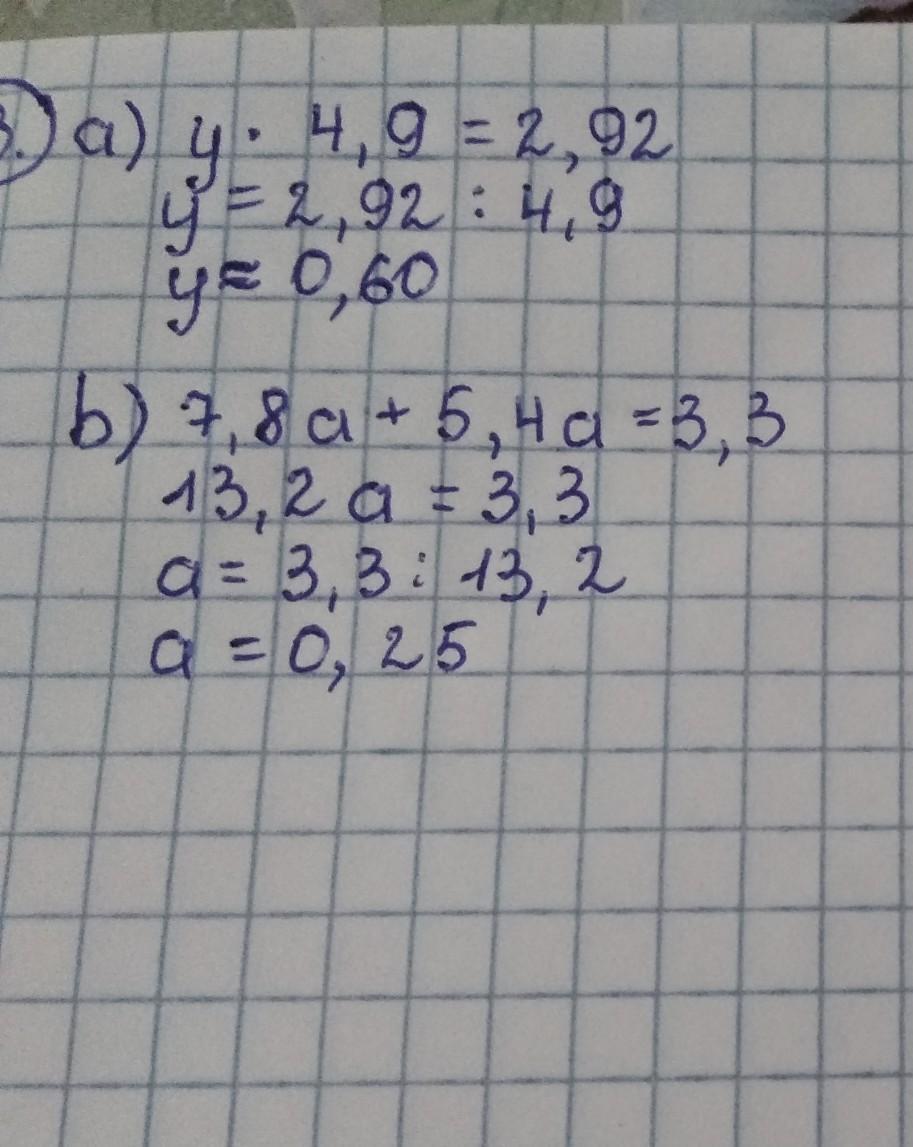 3.) a) y · 4,9 = 2,92
y = 2,92 : 4,9
y ≈ 0,60
b) 7,8a + 5,4a = 3,3
13,2a = 3,3
a = 3,3 : 13,2
a = 0,25